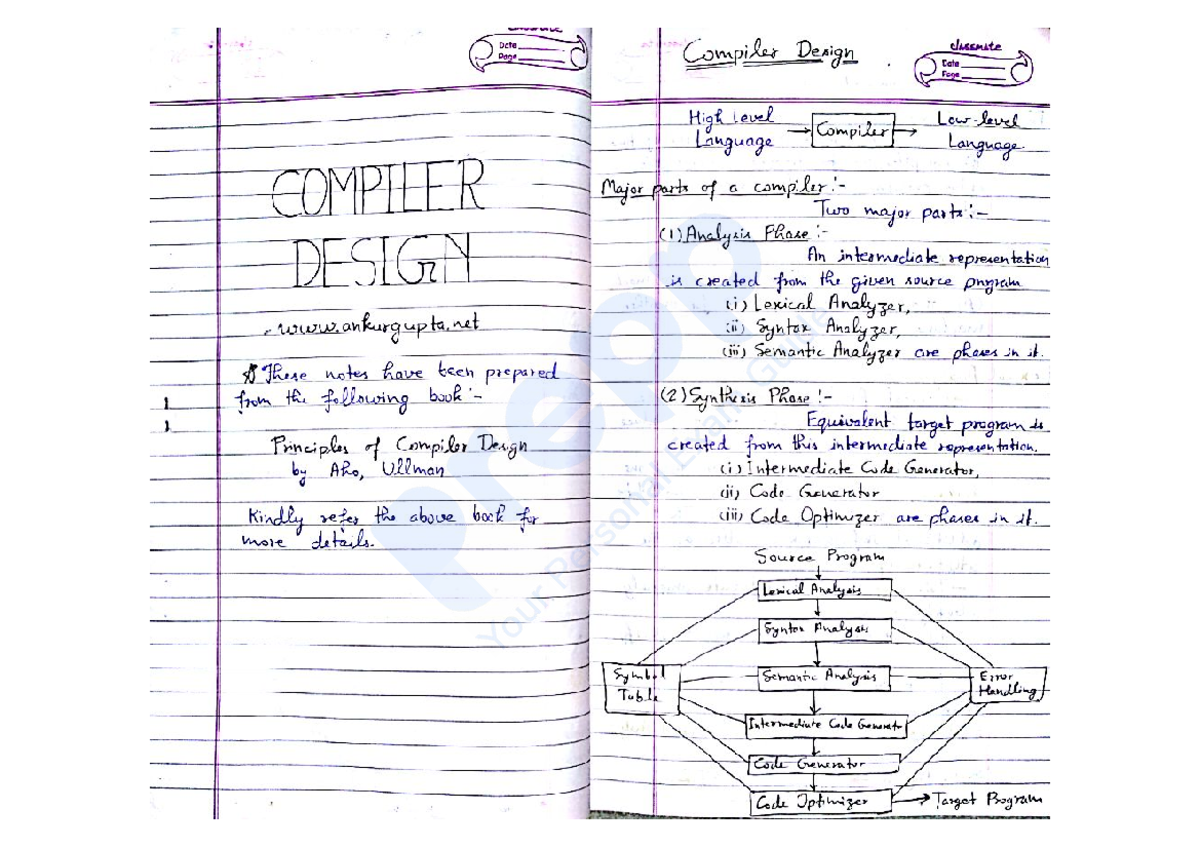 classmate
Date
Page
COMPILER
DESIGN
www.ankurgupta.net
These notes have been prepared
from the following book :-
Principles of Compiler Design
by Aho, Ullman
Kindly refer the above book for
more details.
Compiler Design
classmate
Date
Page
High Level
Language
Compiler
Low-level
Language
Major parts of a compiler :-
Two major parts :-
(1) Analysis Phase :-
An intermediate representation
is created from the given source program
(i) Lexical Analyzer,
(ii) Syntax Analyzer,
(iii) Semantic Analyzer are phases in it.
(2) Synthesis Phase :-
Equivalent target program is
created from this intermediate representation.
(i) Intermediate Code Generator,
(ii) Code Generator
(iii) Code Optimizer are phases in it.
Source Program
Lexical Analysis
Syntax Analysis
Semantic Analysis
Symbol
Table
Error
Handling
Intermediate Code Generator
Code Generator
Code Optimizer
Target Program
prepp
Your Personal Exam Guide